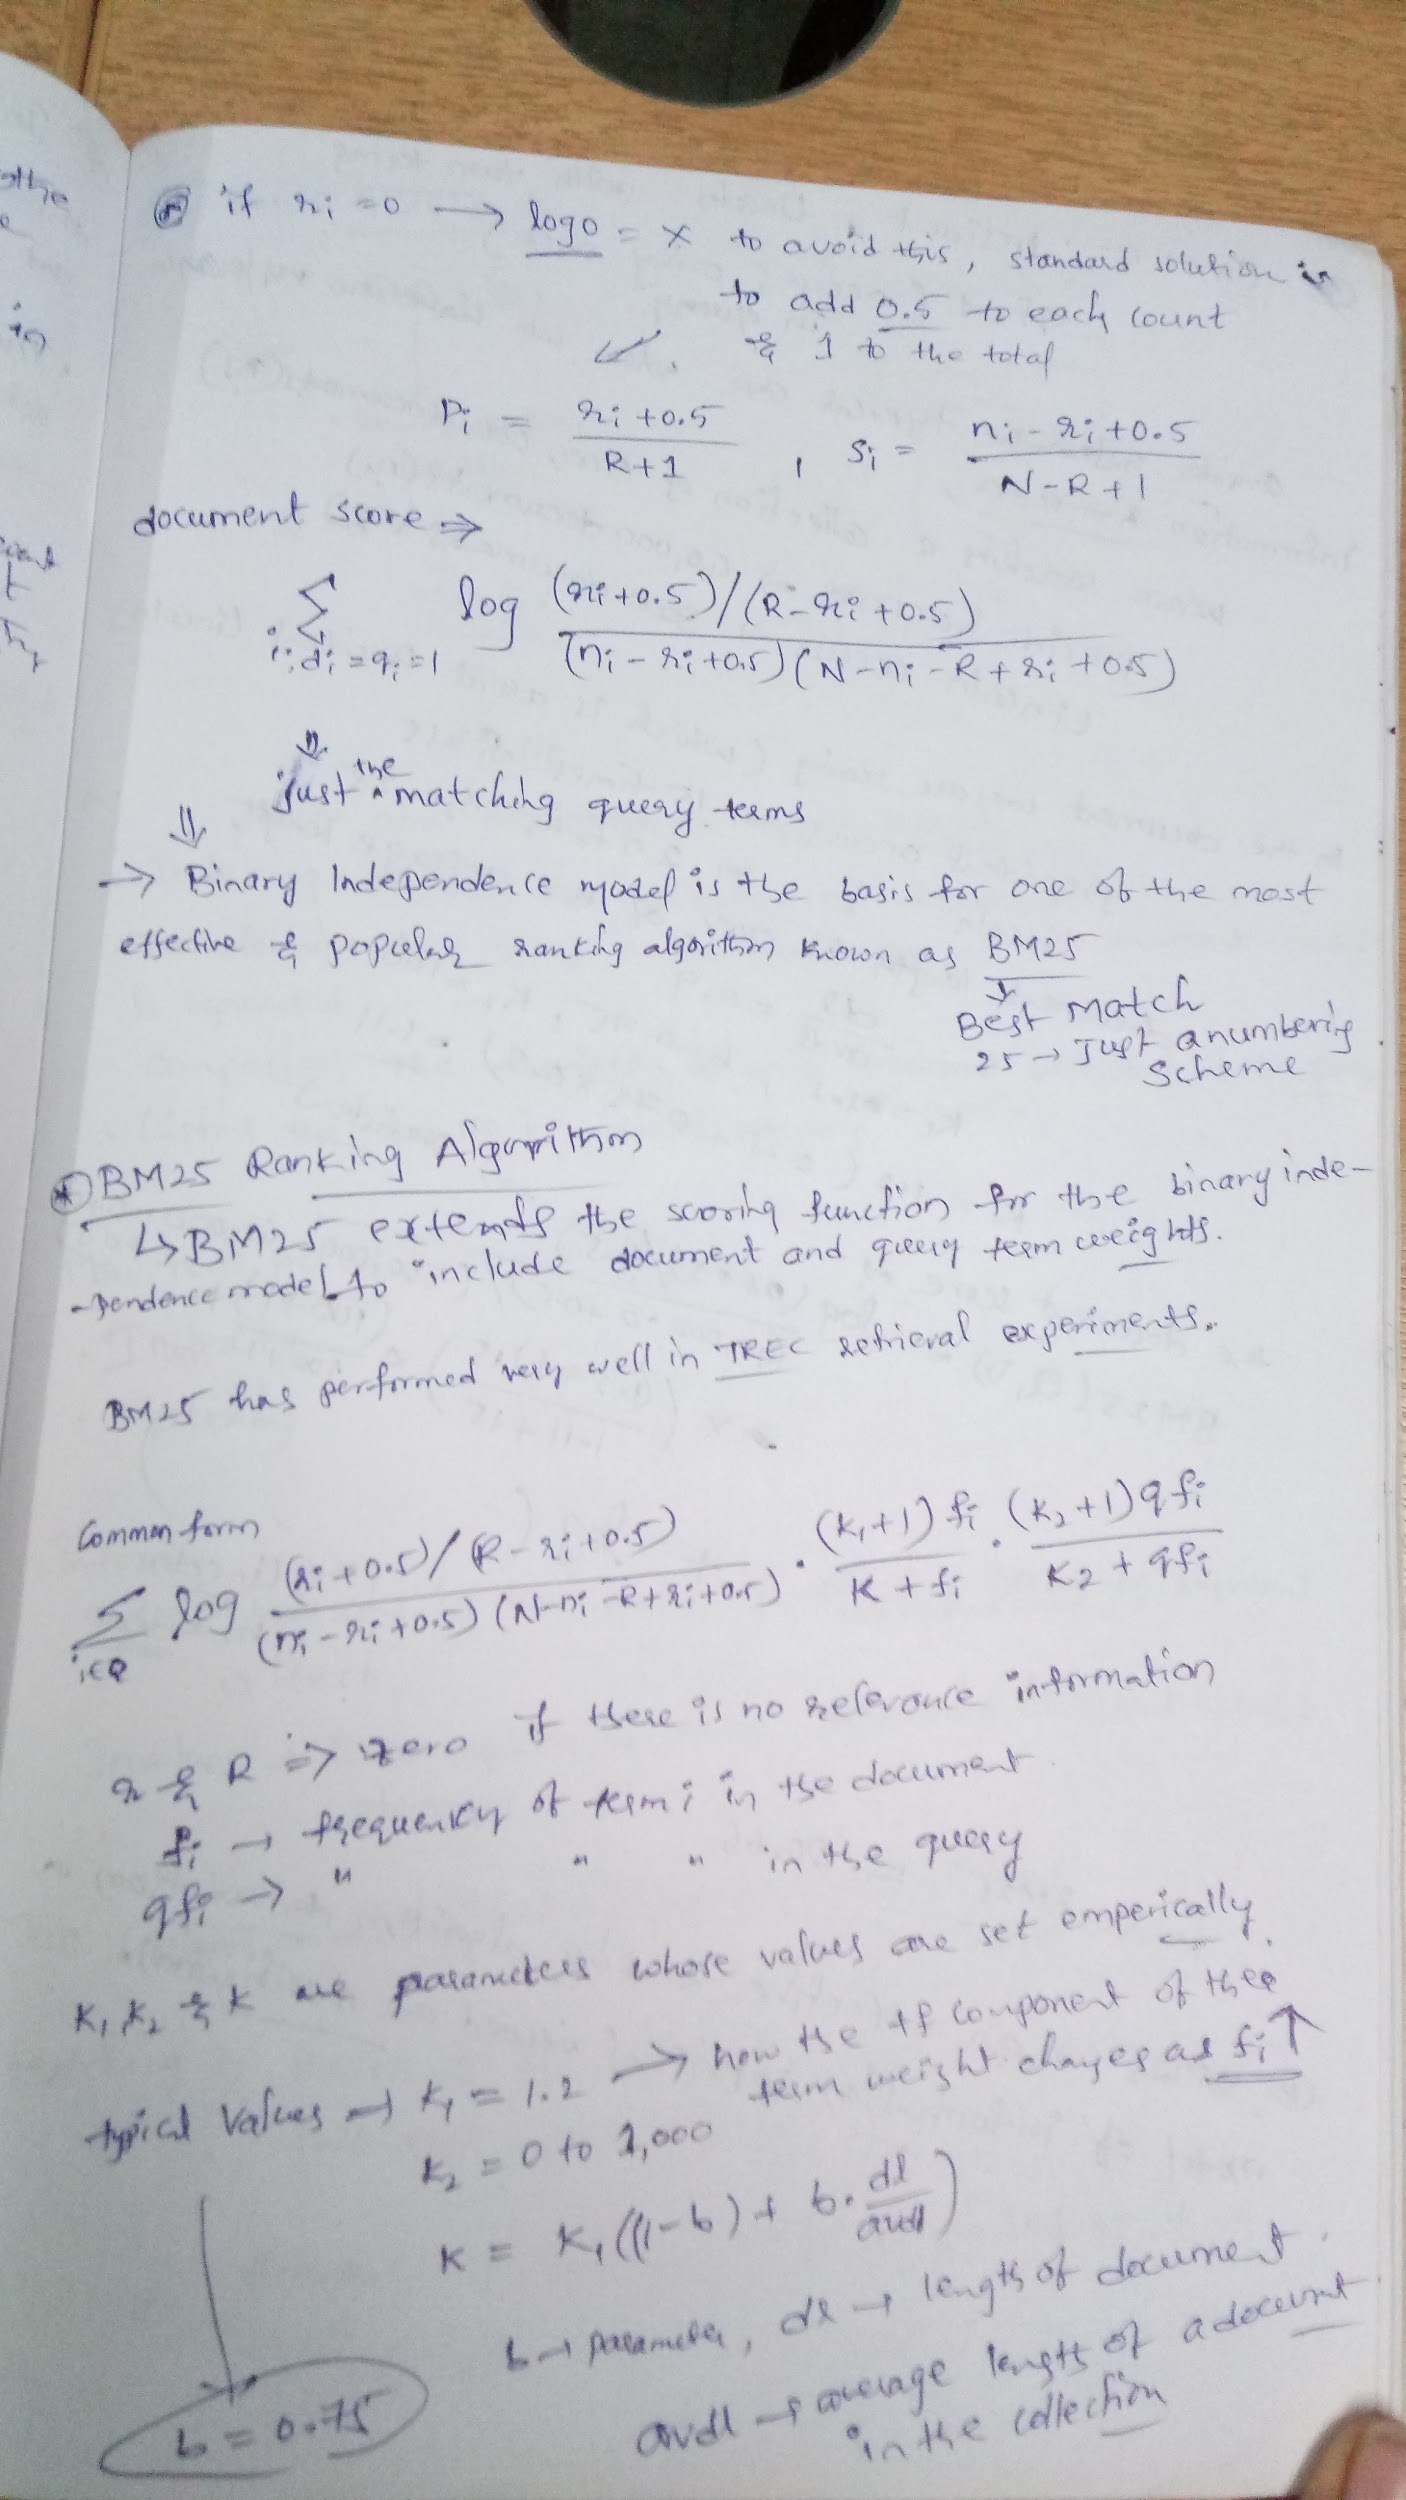 if ri = 0 → log 0 = × to avoid this, standard solution is
to add 0.5 to each count
& 1 to the total
Pi = ri + 0.5 / R + 1 , si = ni - ri + 0.5 / N - R + 1
document score ⇒
∑ i:di = qi = 1 log (ri + 0.5)/(R - ri + 0.5) / (ni - ri + 0.5)(N - ni - R + ri + 0.5)
⇓
just the matching query terms
⇓
→ Binary Independence model is the basis for one of the most
effective & popular ranking algorithm known as BM25
↓
Best Match
25 → Just a numbering
scheme
* BM25 Ranking Algorithm
↳ BM25 extends the scoring function for the binary inde-
-pendence model to include document and query term weights.
BM25 has performed very well in TREC retrieval experiments.
Common form
∑ i∈Q log (ri + 0.5)/(R - ri + 0.5) / (ni - ri + 0.5)(N - ni - R + ri + 0.5) · (k1 + 1) fi / K + fi · (k2 + 1) qfi / k2 + qfi
r & R ⇒ zero if there is no relevance information
fi → frequency of term i in the document.
qfi → " " " in the query
k1, k2 & K are parameters whose values are set emperically.
typical values → k1 = 1.2 → how the tf component of the
term weight changes as fi ↑
k2 = 0 to 1,000
K = k1((1 - b) + b · dl / avdl)
b → parameter, dl → length of document.
avdl → average length of a document
in the collection
b = 0.75